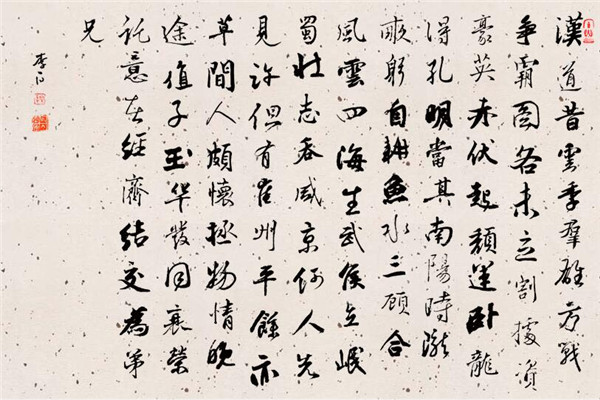 漢道昔雲季羣雄方戰
争霸圖各未立割據資
豪英赤伏起頹運卧龍
得孔明當其南陽時隴
畝躬自耕魚水三顧合
風雲四海生武侯立岷
蜀壯志吞咸京何人先
見許但有崔州平餘亦
草間人頗懷拯物情晚
途值子玉華發同衰榮
託意在經濟結交為弟
兄
李白